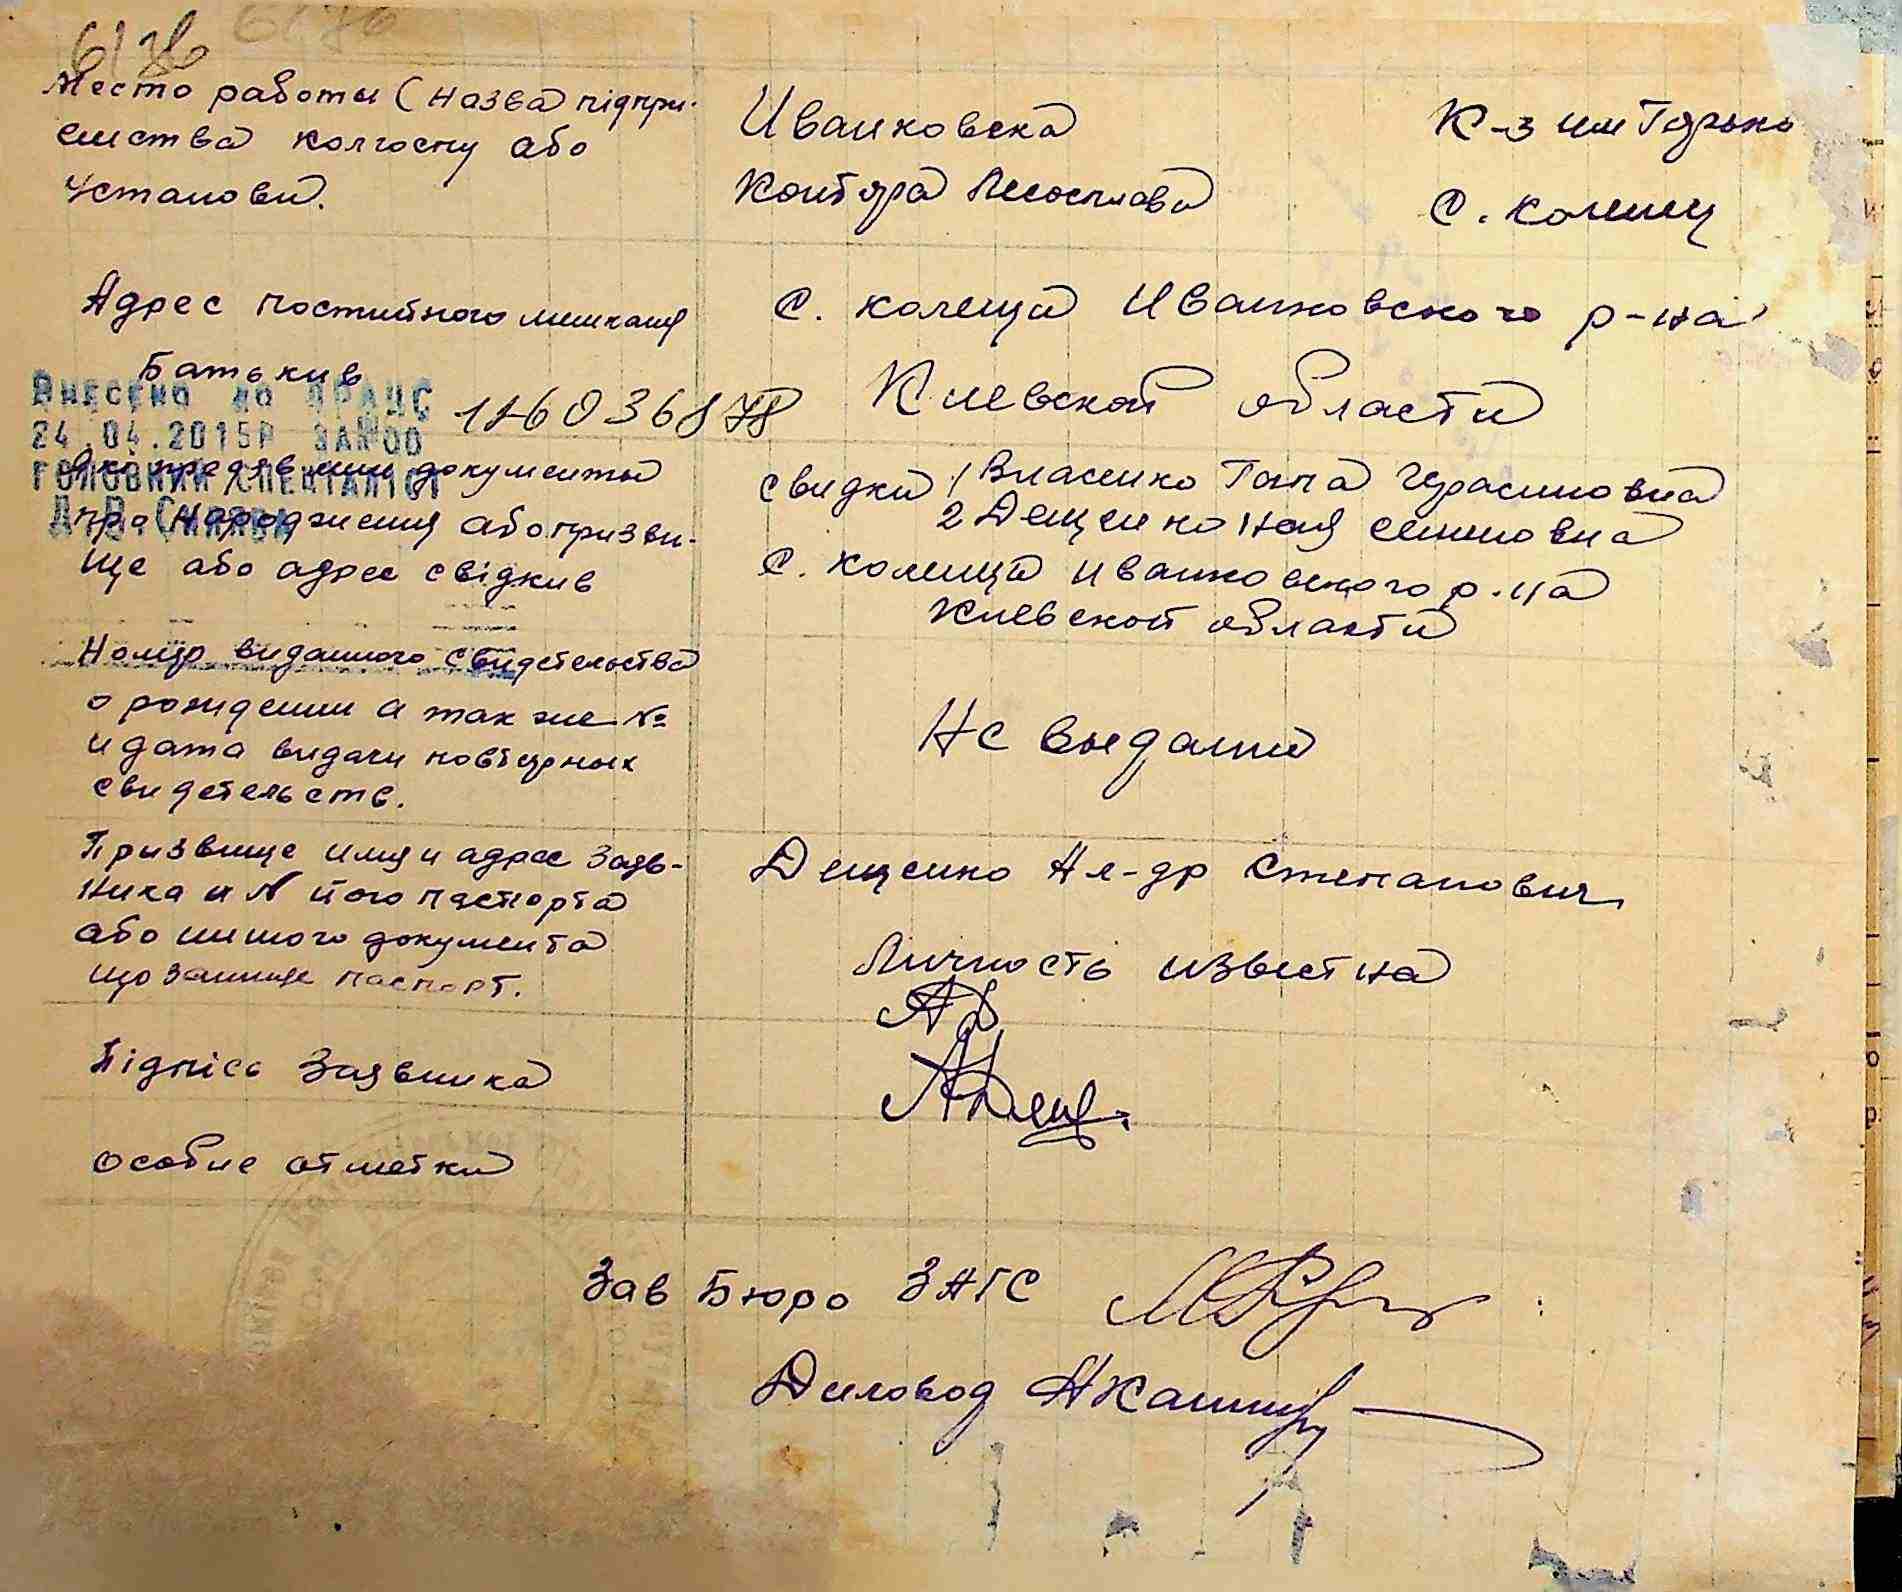 6176
Место работы (назва підпри-
ємства колгоспу або
установи.
Иванковска
Контора Лесосплава
К-з им Горько
с. колещ
Адрес постийного мешкания
Батькив
с. колещи Иванковского р-на
Киевской области
ВНЕСЕНО ДО ДРАЦС
24.04.2015Р ЗА №00
ГОЛОВНИЙ СПЕЦІАЛІСТ
предявлени документы
про народжения або призви-
ще або адрес свідкив
свидки 1 Власенко Гапа Герасимовна
2 Дещенко семеновна
с. колещи иванковского р-на
Киевской области
Номер виданного свидетельства
о рождении а так же №
и дата видачи повторных
свидетельств.
Не выдании
Призвище имя и адрес заяв-
ника и N його паспорта
або иншого документа
що заминяе паспорт.
Дещенко Ал-др Степанович
Личность известна
Підпісь Заявника
АДещ.
особие отметки
Зав Бюро ЗАГС
Диловод